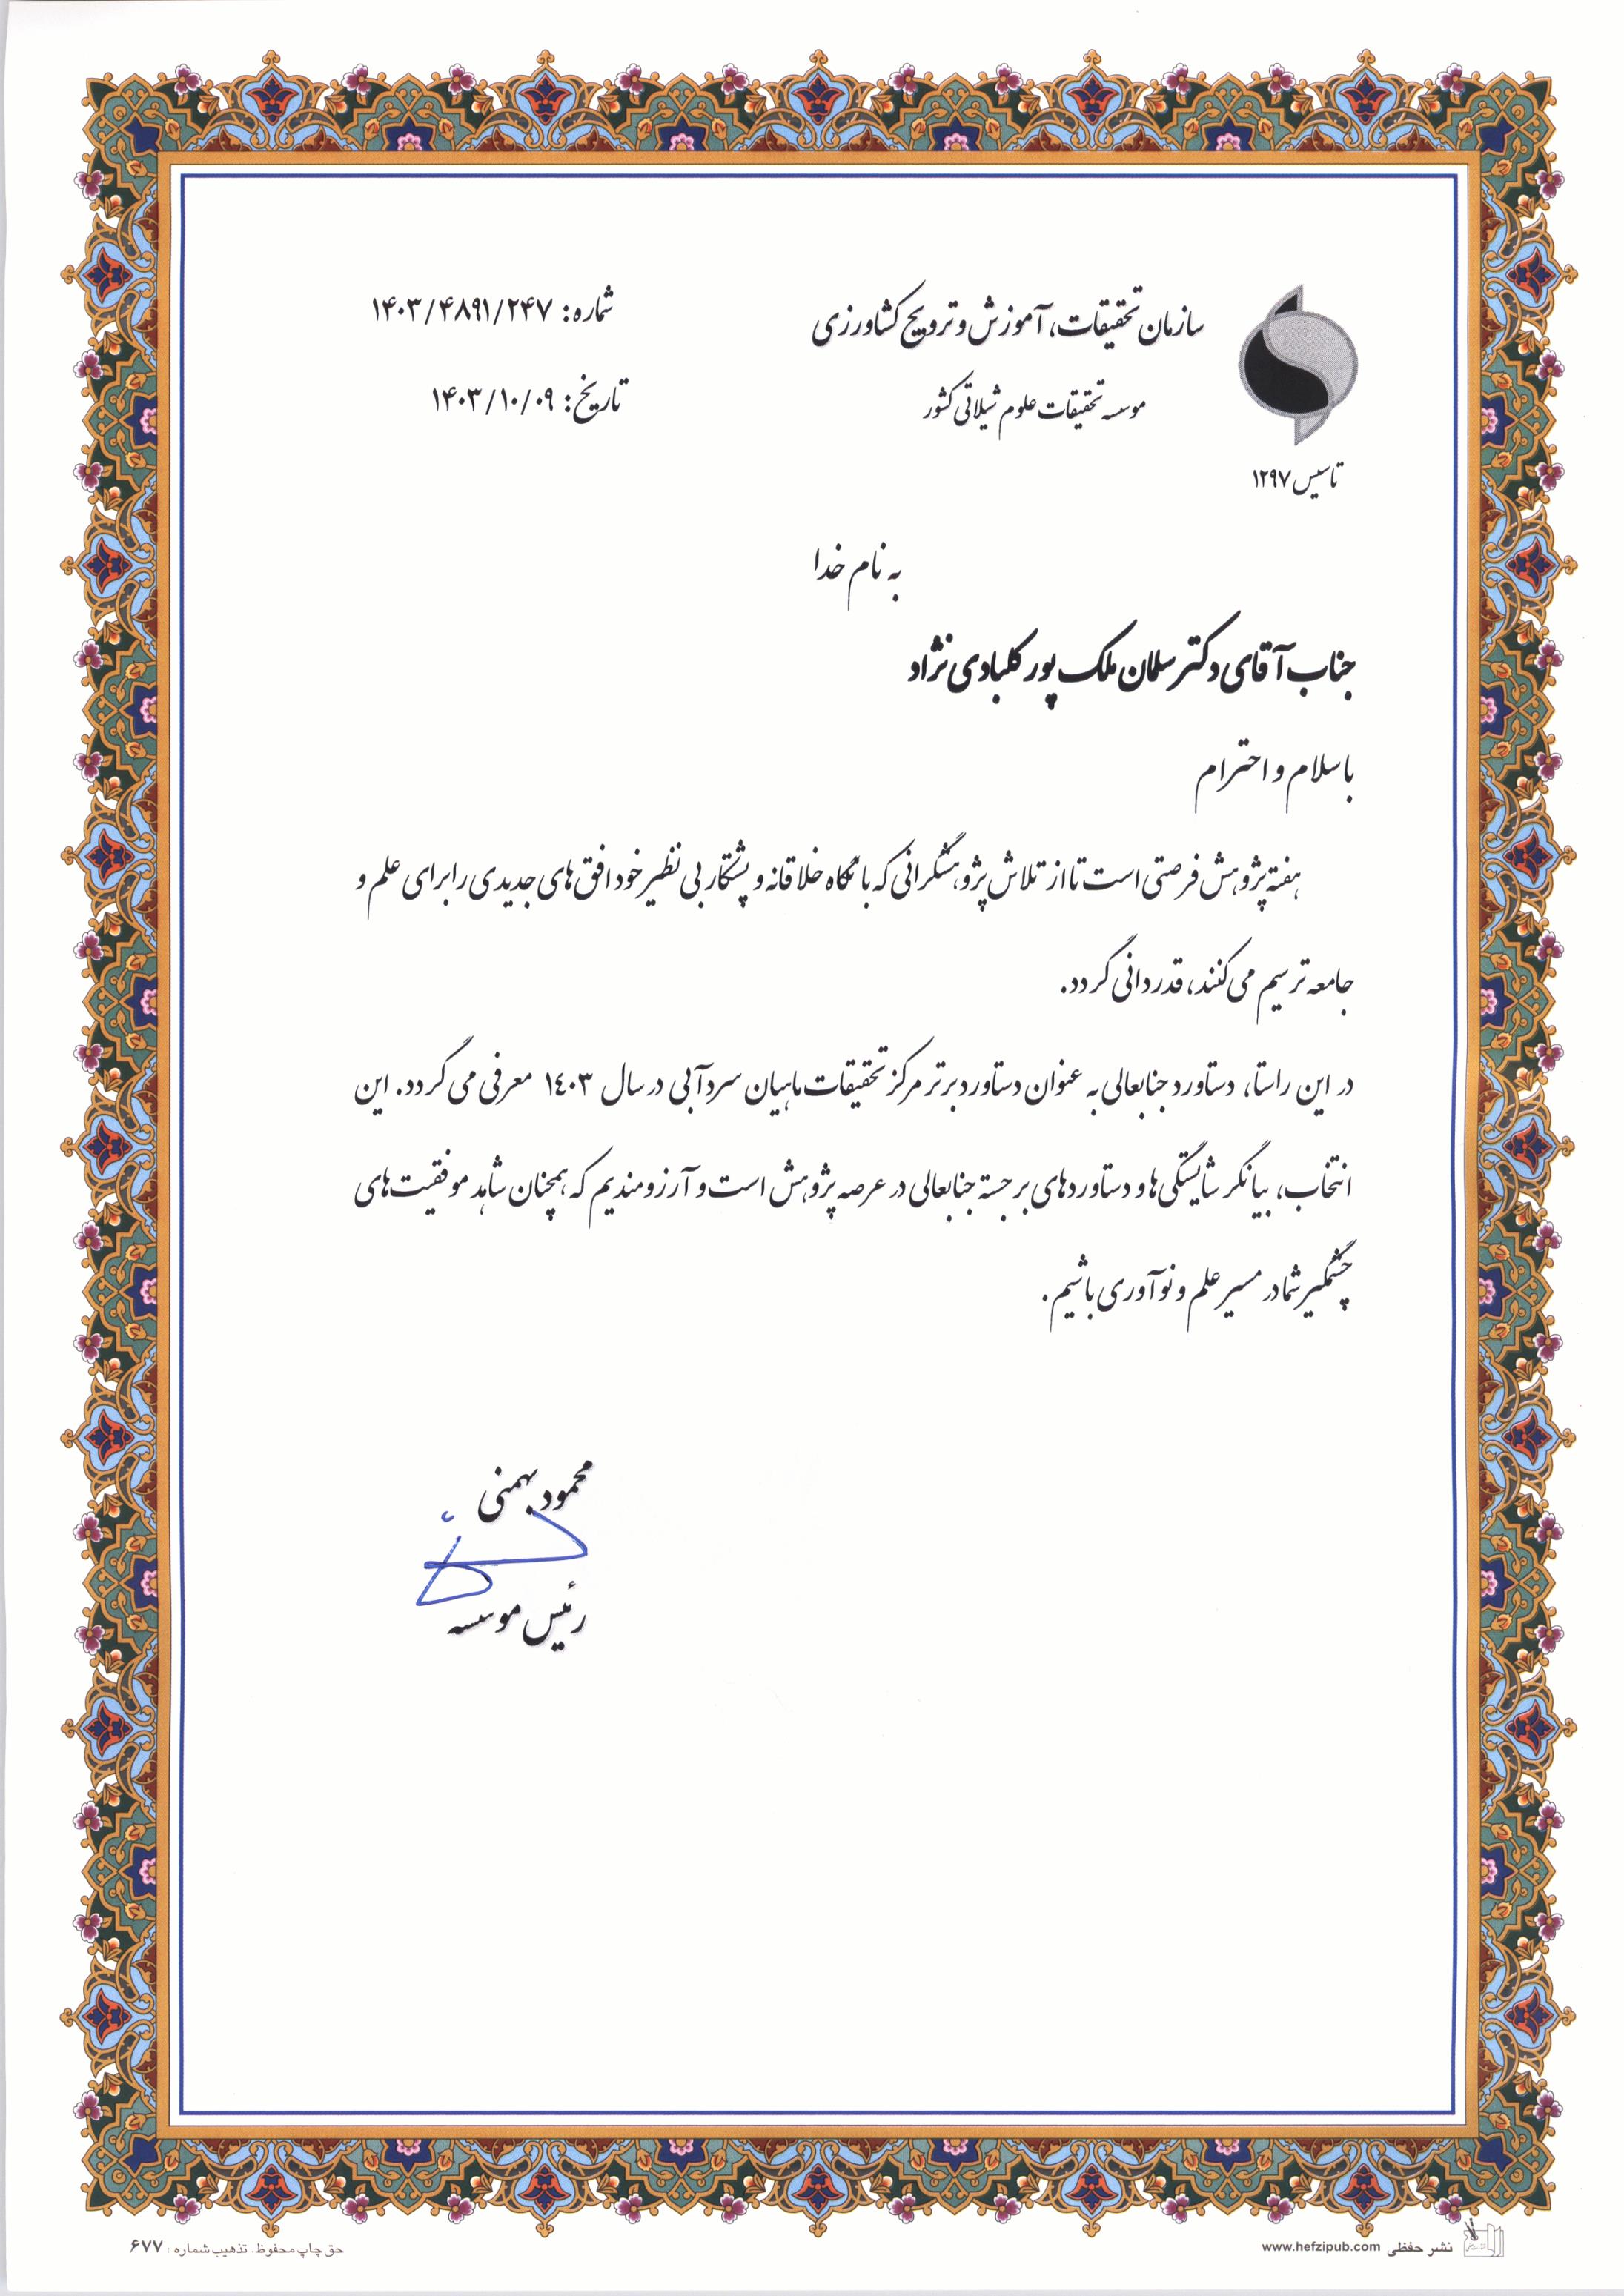 سازمان تحقیقات، آموزش و ترویج کشاورزی
موسسه تحقیقات علوم شیلاتی کشور
تاسیس ۱۲۹۷
شماره: ۱۴۰۳/۴۸۹۱/۲۴۷
تاریخ: ۱۴۰۳/۱۰/۰۹
به نام خدا
جناب آقای دکتر سلمان ملک پور کلبادی نژاد
با سلام و احترام
هفته پژوهش فرصتی است تا از تلاش پژوهشگرانی که با نگاه خلاقانه و پشتکار بی نظیر خود افق های جدیدی را برای علم و
جامعه ترسیم می‌کنند، قدردانی گردد.
در این راستا، دستاورد جنابعالی به عنوان دستاورد برتر مرکز تحقیقات ماهیان سردآبی در سال ۱۴۰۳ معرفی می گردد. این
انتخاب، بیانگر شایستگی‌ها و دستاوردهای برجسته جنابعالی در عرصه پژوهش است و آرزومندیم که همچنان شاهد موفقیت‌های
چشمگیر شما در مسیر علم و نوآوری باشیم.
محمود بهمنی
رئیس موسسه
نشر حفظی www.hefzipub.com
حق چاپ محفوظ. تذهیب شماره : ۶۷۷